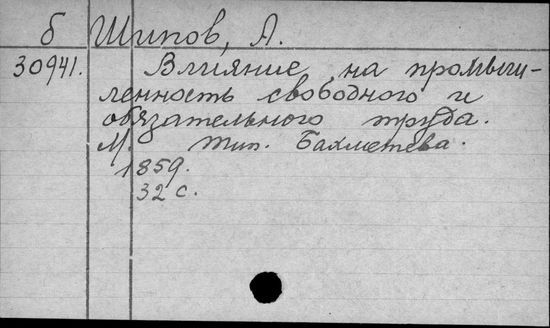 б Шипов, А.
30941. Влияние на промыш-
ленность свободного и
обязательного труда.
М. тип. Бахметева.
1859.
32 с.